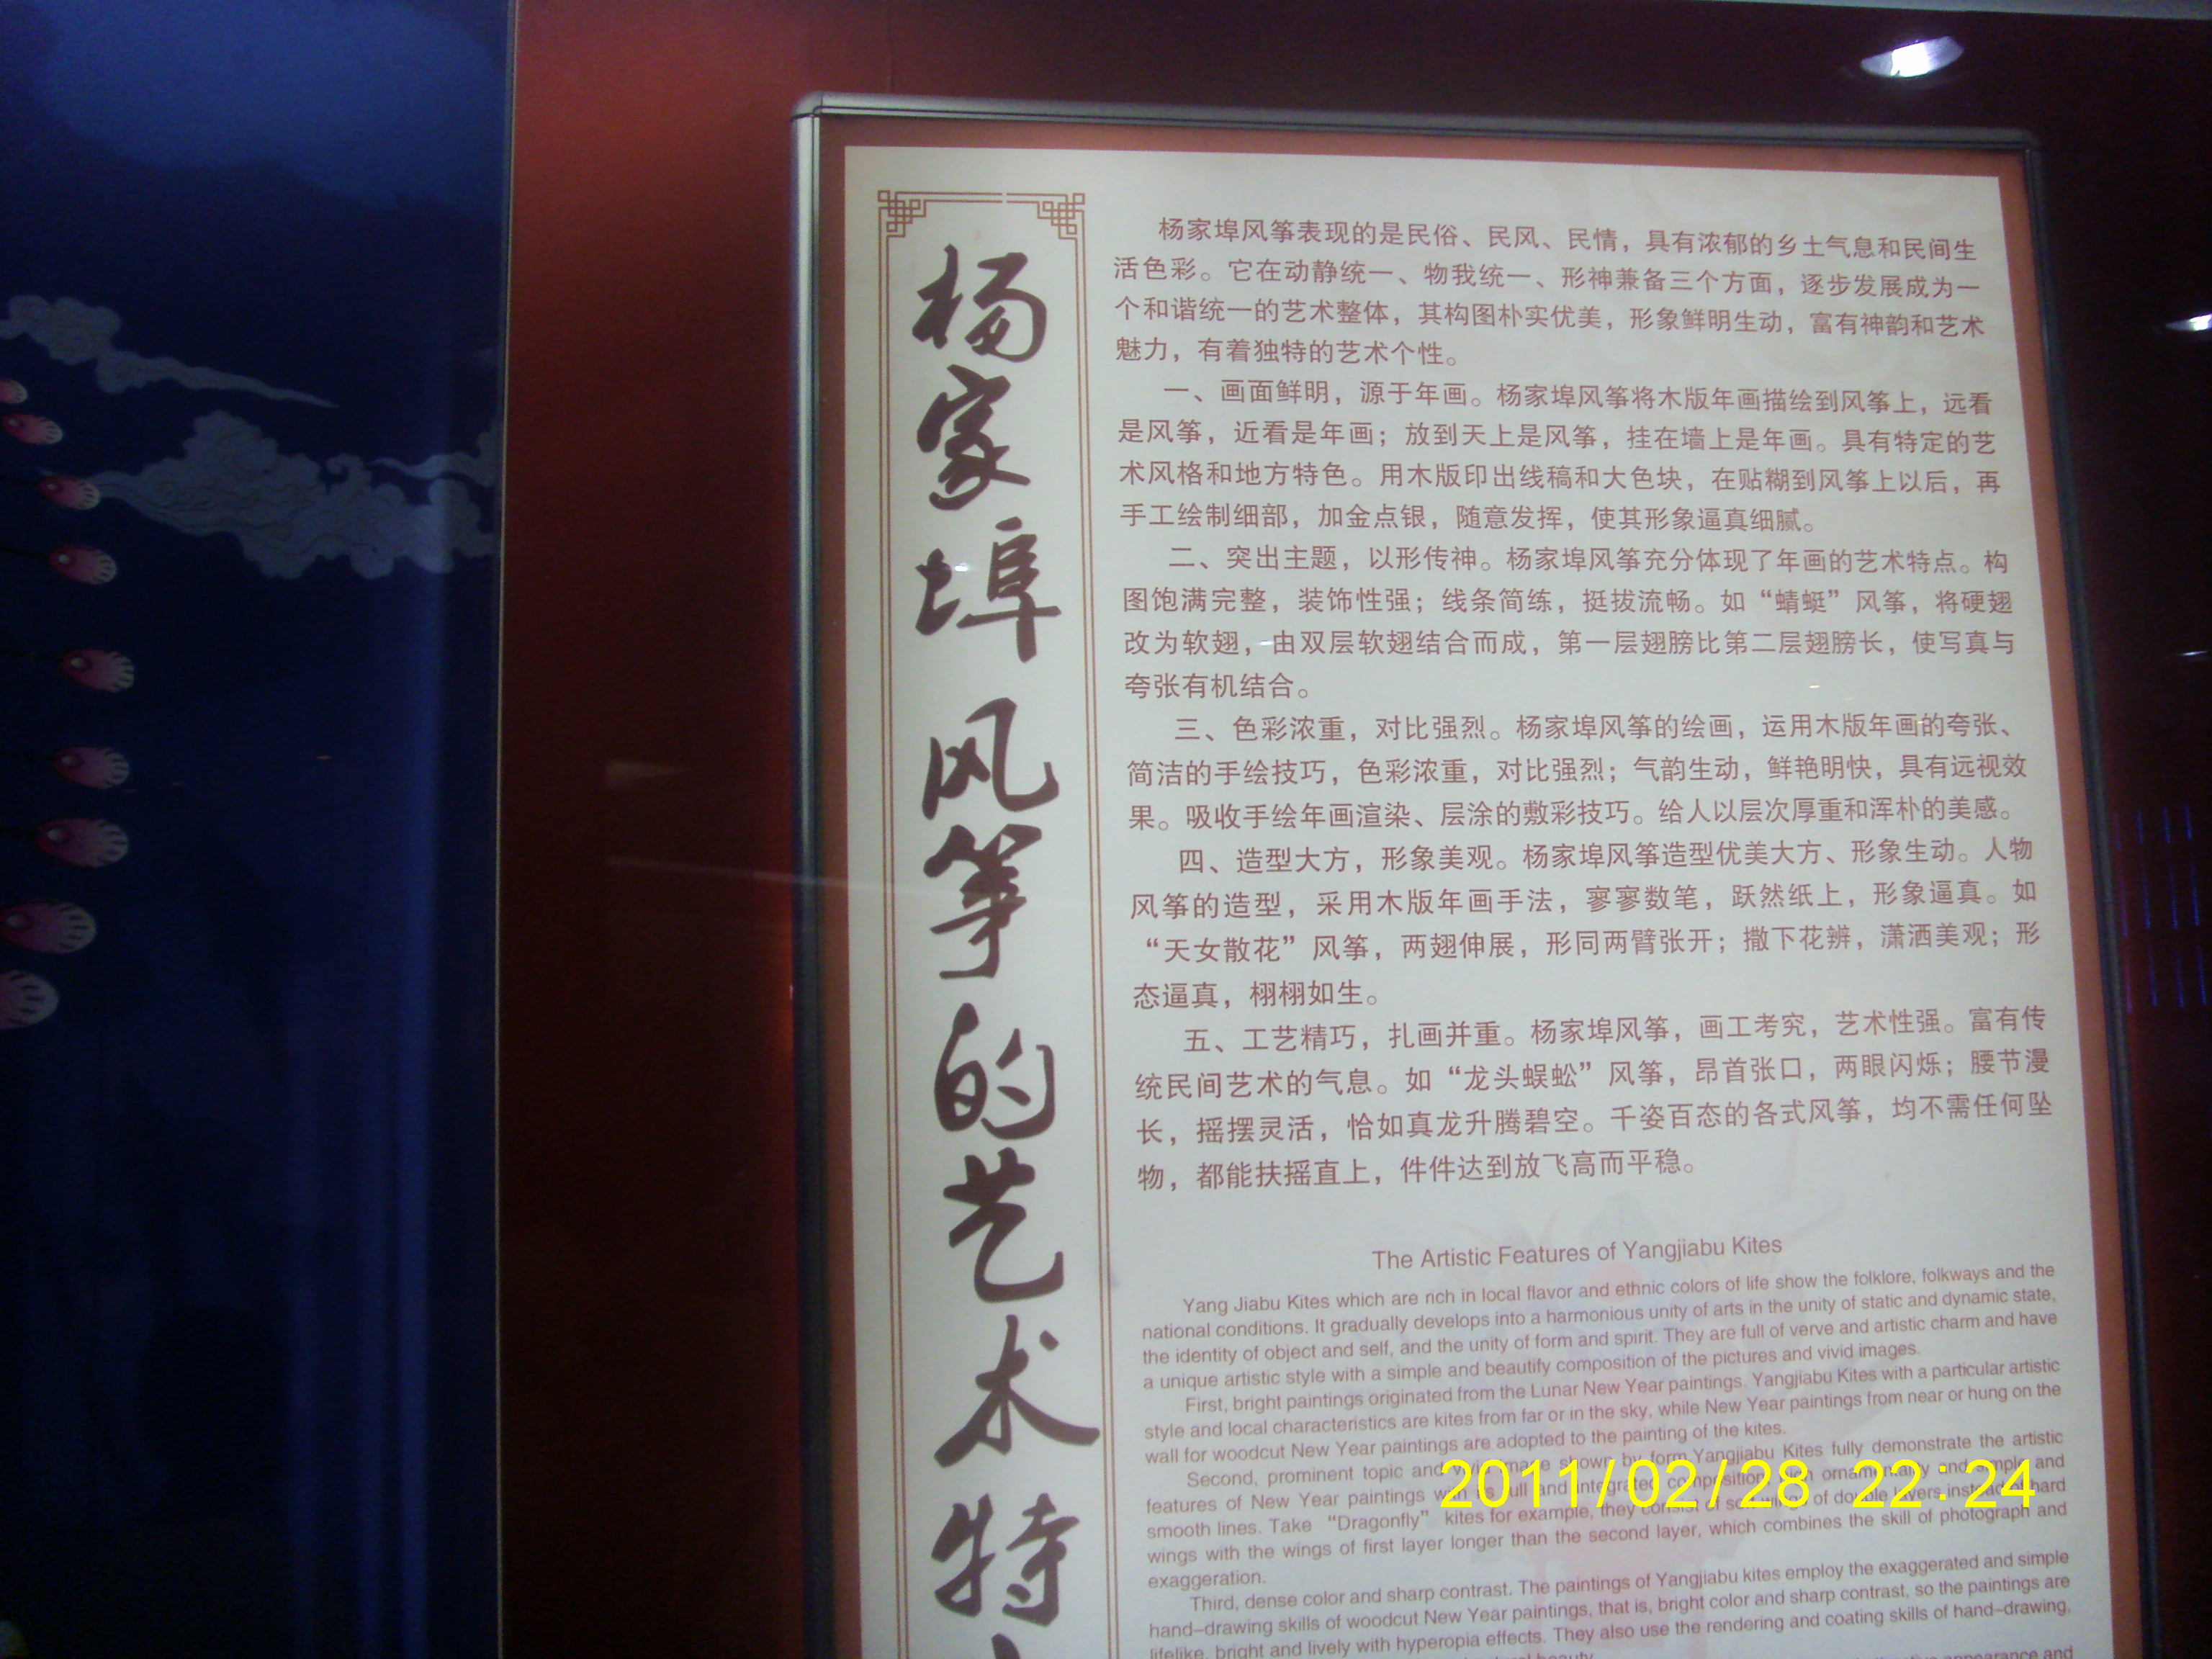 杨家埠风筝的艺术特
杨家埠风筝表现的是民俗、民风、民情，具有浓郁的乡土气息和民间生
活色彩。它在动静统一、物我统一、形神兼备三个方面，逐步发展成为一
个和谐统一的艺术整体，其构图朴实优美，形象鲜明生动，富有神韵和艺术
魅力，有着独特的艺术个性。
一、画面鲜明，源于年画。杨家埠风筝将木版年画描绘到风筝上，远看
是风筝，近看是年画；放到天上是风筝，挂在墙上是年画。具有特定的艺
术风格和地方特色。用木版印出线稿和大色块，在贴糊到风筝上以后，再
手工绘制细部，加金点银，随意发挥，使其形象逼真细腻。
二、突出主题，以形传神。杨家埠风筝充分体现了年画的艺术特点。构
图饱满完整，装饰性强；线条简练，挺拔流畅。如“蜻蜓”风筝，将硬翅
改为软翅，由双层软翅结合而成，第一层翅膀比第二层翅膀长，使写真与
夸张有机结合。
三、色彩浓重，对比强烈。杨家埠风筝的绘画，运用木版年画的夸张、
简洁的手绘技巧，色彩浓重，对比强烈；气韵生动，鲜艳明快，具有远视效
果。吸收手绘年画渲染、层涂的敷彩技巧。给人以层次厚重和浑朴的美感。
四、造型大方，形象美观。杨家埠风筝造型优美大方、形象生动。人物
风筝的造型，采用木版年画手法，寥寥数笔，跃然纸上，形象逼真。如
“天女散花”风筝，两翅伸展，形同两臂张开；撒下花辨，潇洒美观；形
态逼真，栩栩如生。
五、工艺精巧，扎画并重。杨家埠风筝，画工考究，艺术性强。富有传
统民间艺术的气息。如“龙头蜈蚣”风筝，昂首张口，两眼闪烁；腰节漫
长，摇摆灵活，恰如真龙升腾碧空。千姿百态的各式风筝，均不需任何坠
物，都能扶摇直上，件件达到放飞高而平稳。
The Artistic Features of Yangjiabu Kites
Yang Jiabu Kites which are rich in local flavor and ethnic colors of life show the folklore, folkways and the
national conditions. It gradually develops into a harmonious unity of arts in the unity of static and dynamic state,
the identity of object and self, and the unity of form and spirit. They are full of verve and artistic charm and have
a unique artistic style with a simple and beautify composition of the pictures and vivid images.
First, bright paintings originated from the Lunar New Year paintings. Yangjiabu Kites with a particular artistic
style and local characteristics are kites from far or in the sky, while New Year paintings from near or hung on the
wall for woodcut New Year paintings are adopted to the painting of the kites.
Second, prominent topic and vivid image shown by form Yangjiabu Kites fully demonstrate the artistic
features of New Year paintings with its full and integrated composition, ornamentality and simple and
smooth lines. Take “Dragonfly” kites for example, they consist of soft wings of double layers instead hard
wings with the wings of first layer longer than the second layer, which combines the skill of photograph and
exaggeration.
Third, dense color and sharp contrast. The paintings of Yangjiabu kites employ the exaggerated and simple
hand-drawing skills of woodcut New Year paintings, that is, bright color and sharp contrast, so the paintings are
lifelike, bright and lively with hyperopia effects. They also use the rendering and coating skills of hand-drawing,
appearance and
2011/02/28 22:24